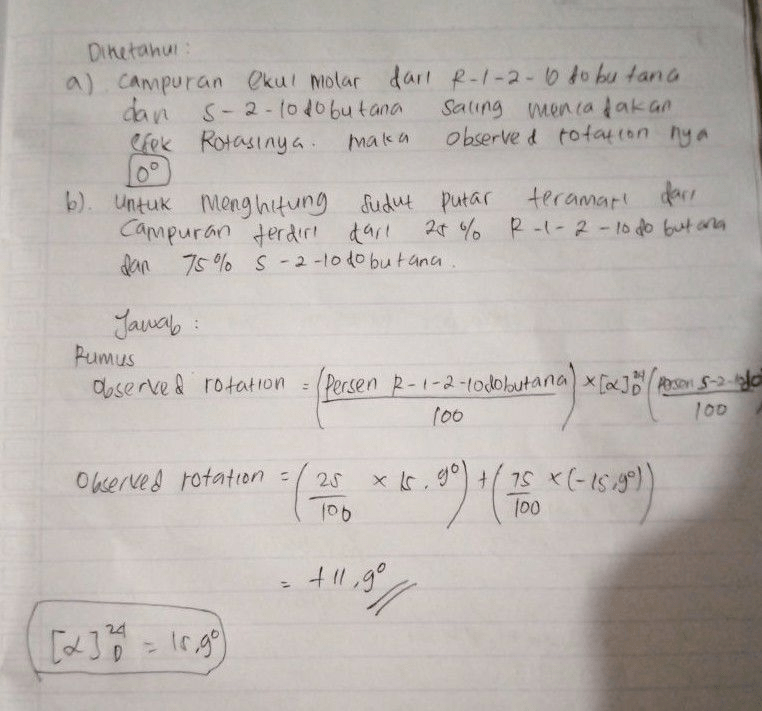 Diketahui :
a) campuran Ekui molar dari R-1-2-10 dobutana
dan S-2-10dobutana saling meniadakan
efek Rotasinya. maka observed rotation nya
0°
b). untuk Menghitung sudut putar teramati dari
Campuran terdiri dari 25 % R-1-2-10do butana
dan 75% S-2-10dobutana.
Jawab :
Rumus
Observed rotation = (Persen R-1-2-10dobutana / 100) × [α]D24 (Persen S-2-10do / 100)
Observed rotation = (25/100 × 15,9°) + (75/100 × (-15,9°))
= +11,9°
[α]D24 = 15,9°